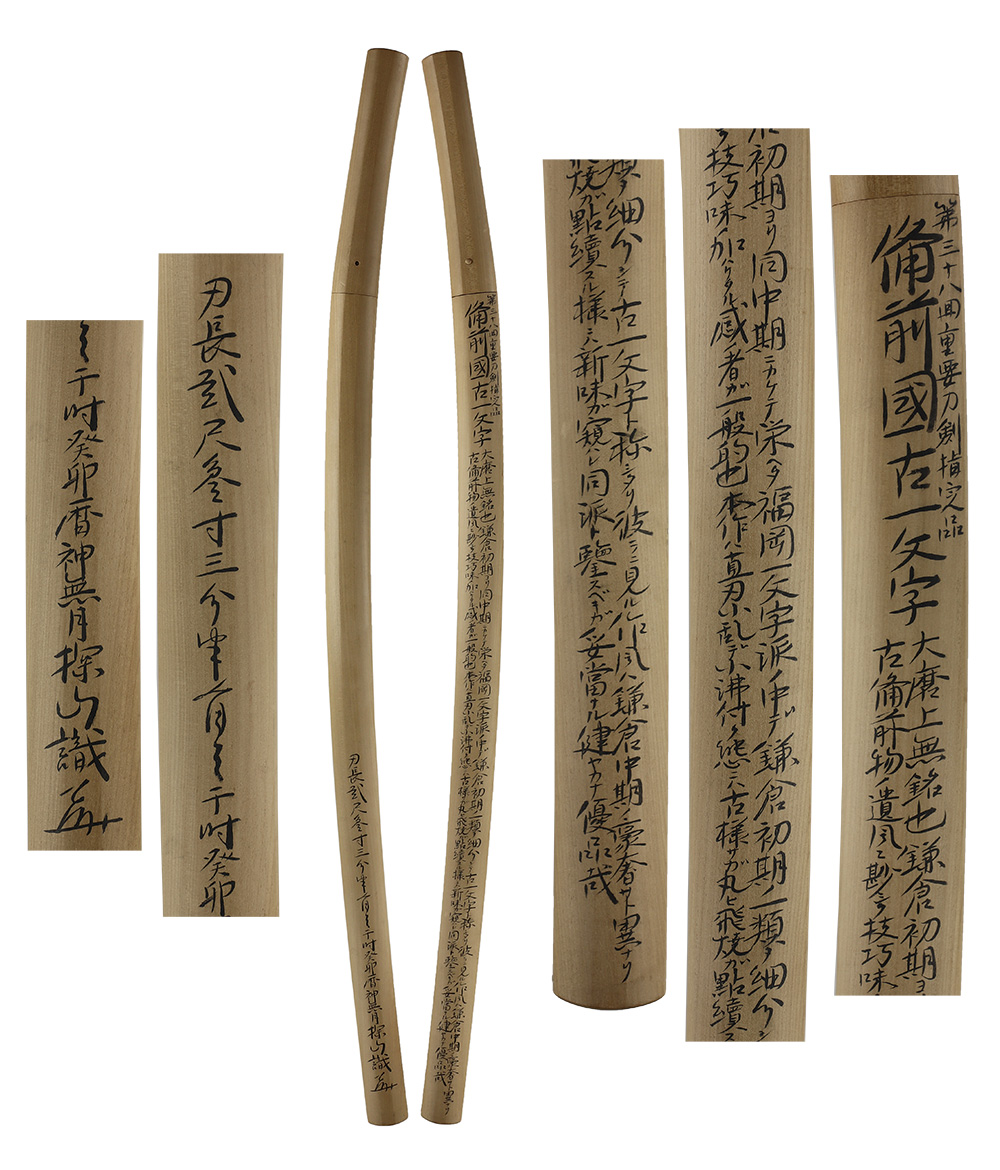 第三十八回重要刀剣指定品
備前國古一文字
大磨上無銘也鎌倉初期ヨリ同中期ニカケテ栄ヘタ福岡一文字派ノ中デ鎌倉初期ノ一類ヲ細分シテ古一文字ト称シヲリ彼ラニ見ル作風ハ鎌倉中期ノ豪奢サト異ナリ
古備前物ノ遺風ニ尠シク技巧味ノ加ハリタル感ノ者ガ一般的也本作ハ直刃小乱ニ小沸付ク態ニ古様サガ丸ヒ飛焼ガ點續スル様ニ新味ガ窺ヘ同派ト鑒スベキガ妥當ナル健ヤカナ優品哉
刃長弐尺参寸三分半有之于時癸卯暦神無月探山識